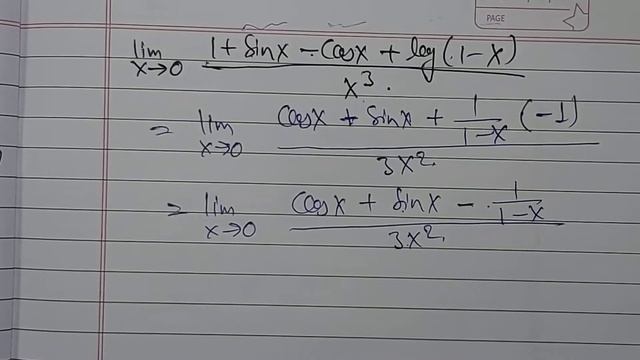 PAGE
lim x→0 (1 + sinx - cosx + log(1-x)) / x³
= lim x→0 (cosx + sinx + 1/(1-x) (-1)) / 3x²
= lim x→0 (cosx + sinx - 1/(1-x)) / 3x²